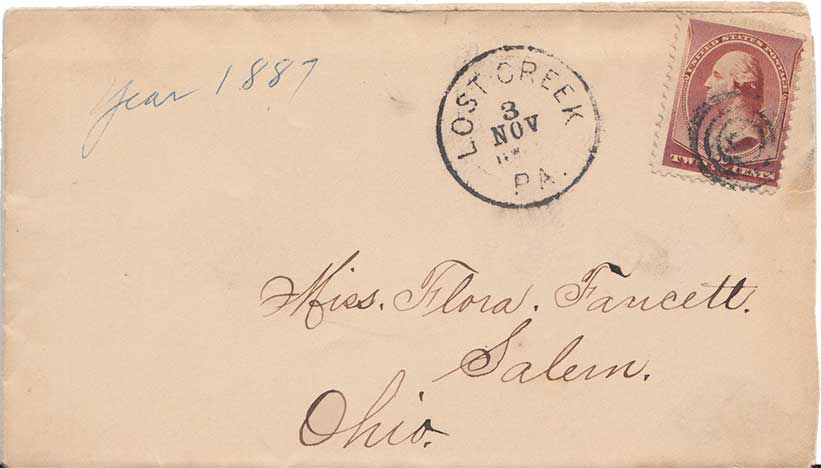 year 1887
LOST CREEK
3
NOV
PA.
UNITED STATES POSTAGE
TWO CENTS
Miss. Flora. Fawcett.
Salem.
Ohio.